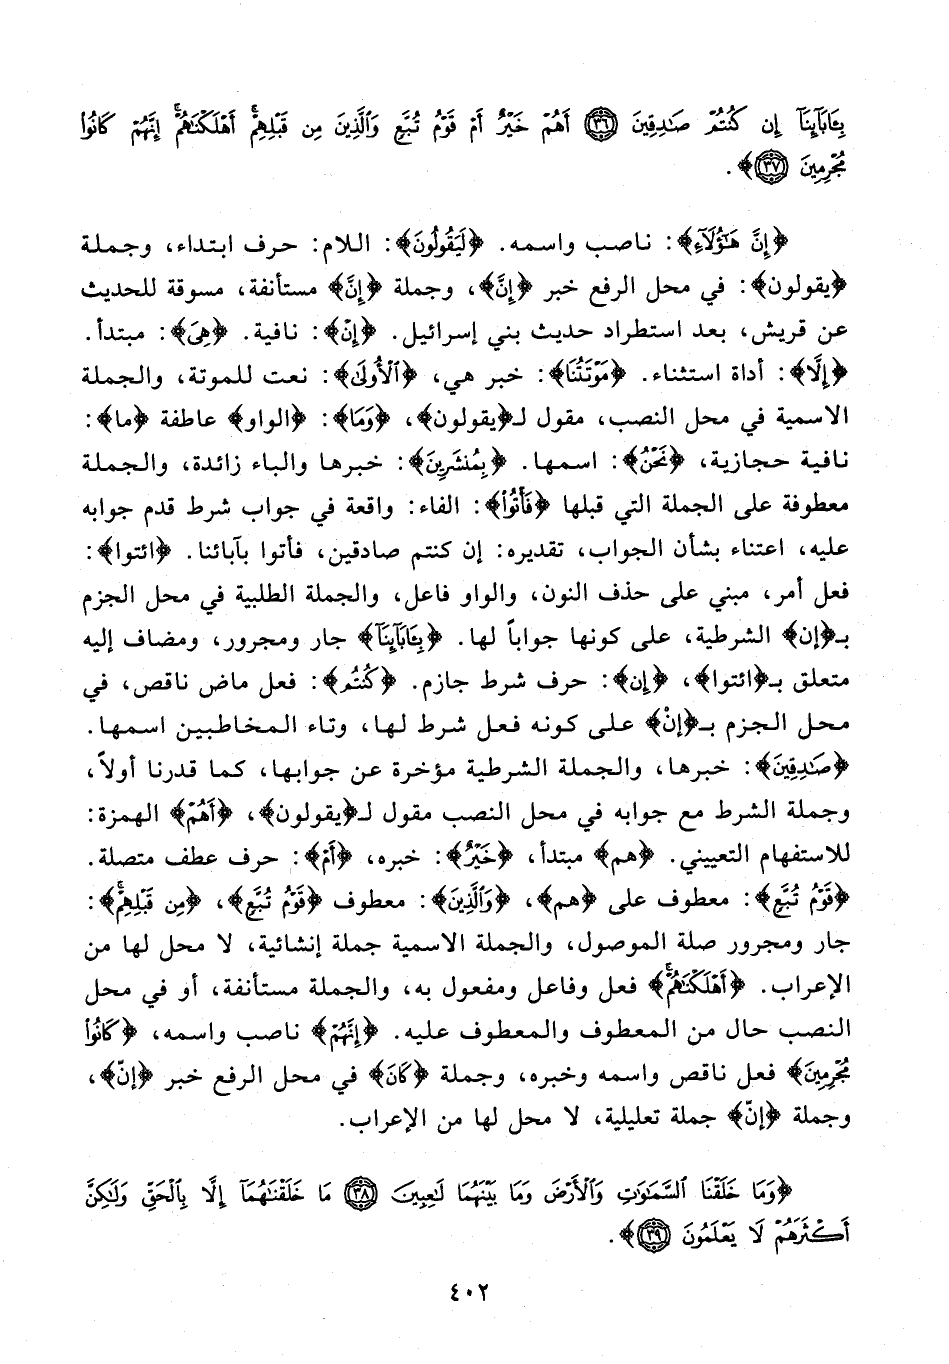 بِـَٔابَآئِنَآ إِن كُنتُمْ صَٰدِقِينَ ﴿٣٦﴾ أَهُمْ خَيْرٌ أَمْ قَوْمُ تُبَّعٍ وَٱلَّذِينَ مِن قَبْلِهِمْ ۚ أَهْلَكْنَٰهُمْ ۖ إِنَّهُمْ كَانُوا۟
مُجْرِمِينَ ﴿٣٧﴾﴾.
﴿إِنَّ هَٰٓؤُلَآءِ﴾: ناصب واسمه. ﴿لَيَقُولُونَ﴾: اللام: حرف ابتداء، وجملة
﴿يقولون﴾: في محل الرفع خبر ﴿إِنَّ﴾، وجملة ﴿إِنَّ﴾ مستأنفة، مسوقة للحديث
عن قريش، بعد استطراد حديث بني إسرائيل. ﴿إِنْ﴾: نافية. ﴿هِيَ﴾: مبتدأ.
﴿إِلَّا﴾: أداة استثناء. ﴿مَوْتَتُنَا﴾: خبر هي، ﴿ٱلْأُولَىٰ﴾: نعت للموتة، والجملة
الاسمية في محل النصب، مقول لـ﴿يقولون﴾، ﴿وَمَا﴾: ﴿الواو﴾ عاطفة ﴿ما﴾:
نافية حجازية، ﴿نَحْنُ﴾: اسمها. ﴿بِمُنشَرِينَ﴾: خبرها والباء زائدة، والجملة
معطوفة على الجملة التي قبلها ﴿فَأْتُوا۟﴾: الفاء: واقعة في جواب شرط قدم جوابه
عليه، اعتناء بشأن الجواب، تقديره: إن كنتم صادقين، فأتوا بآبائنا. ﴿ائتوا﴾:
فعل أمر، مبني على حذف النون، والواو فاعل، والجملة الطلبية في محل الجزم
بـ﴿إن﴾ الشرطية، على كونها جواباً لها. ﴿بِـَٔابَآئِنَآ﴾ جار ومجرور، ومضاف إليه
متعلق بـ﴿ائتوا﴾، ﴿إِن﴾: حرف شرط جازم. ﴿كُنتُمْ﴾: فعل ماض ناقص، في
محل الجزم بـ﴿إنْ﴾ على كونه فعل شرط لها، وتاء المخاطبين اسمها.
﴿صَٰدِقِينَ﴾: خبرها، والجملة الشرطية مؤخرة عن جوابها، كما قدرنا أولاً،
وجملة الشرط مع جوابه في محل النصب مقول لـ﴿يقولون﴾، ﴿أَهُمْ﴾ الهمزة:
للاستفهام التعييني. ﴿هم﴾ مبتدأ، ﴿خَيْرٌ﴾: خبره، ﴿أَمْ﴾: حرف عطف متصلة.
﴿قَوْمُ تُبَّعٍ﴾: معطوف على ﴿هم﴾، ﴿وَٱلَّذِينَ﴾: معطوف ﴿قَوْمُ تُبَّعٍ﴾، ﴿مِن قَبْلِهِمْ ۚ﴾:
جار ومجرور صلة الموصول، والجملة الاسمية جملة إنشائية، لا محل لها من
الإعراب. ﴿أَهْلَكْنَٰهُمْ ۖ﴾ فعل وفاعل ومفعول به، والجملة مستأنفة، أو في محل
النصب حال من المعطوف والمعطوف عليه. ﴿إِنَّهُمْ﴾ ناصب واسمه، ﴿كَانُوا۟
مُجْرِمِينَ﴾ فعل ناقص واسمه وخبره، وجملة ﴿كَانَ﴾ في محل الرفع خبر ﴿إنّ﴾،
وجملة ﴿إنّ﴾ جملة تعليلية، لا محل لها من الإعراب.
﴿وَمَا خَلَقْنَا ٱلسَّمَٰوَٰتِ وَٱلْأَرْضَ وَمَا بَيْنَهُمَا لَٰعِبِينَ ﴿٣٨﴾ مَا خَلَقْنَٰهُمَآ إِلَّا بِٱلْحَقِّ وَلَٰكِنَّ
أَكْثَرَهُمْ لَا يَعْلَمُونَ ﴿٣٩﴾﴾.
٤٠٢